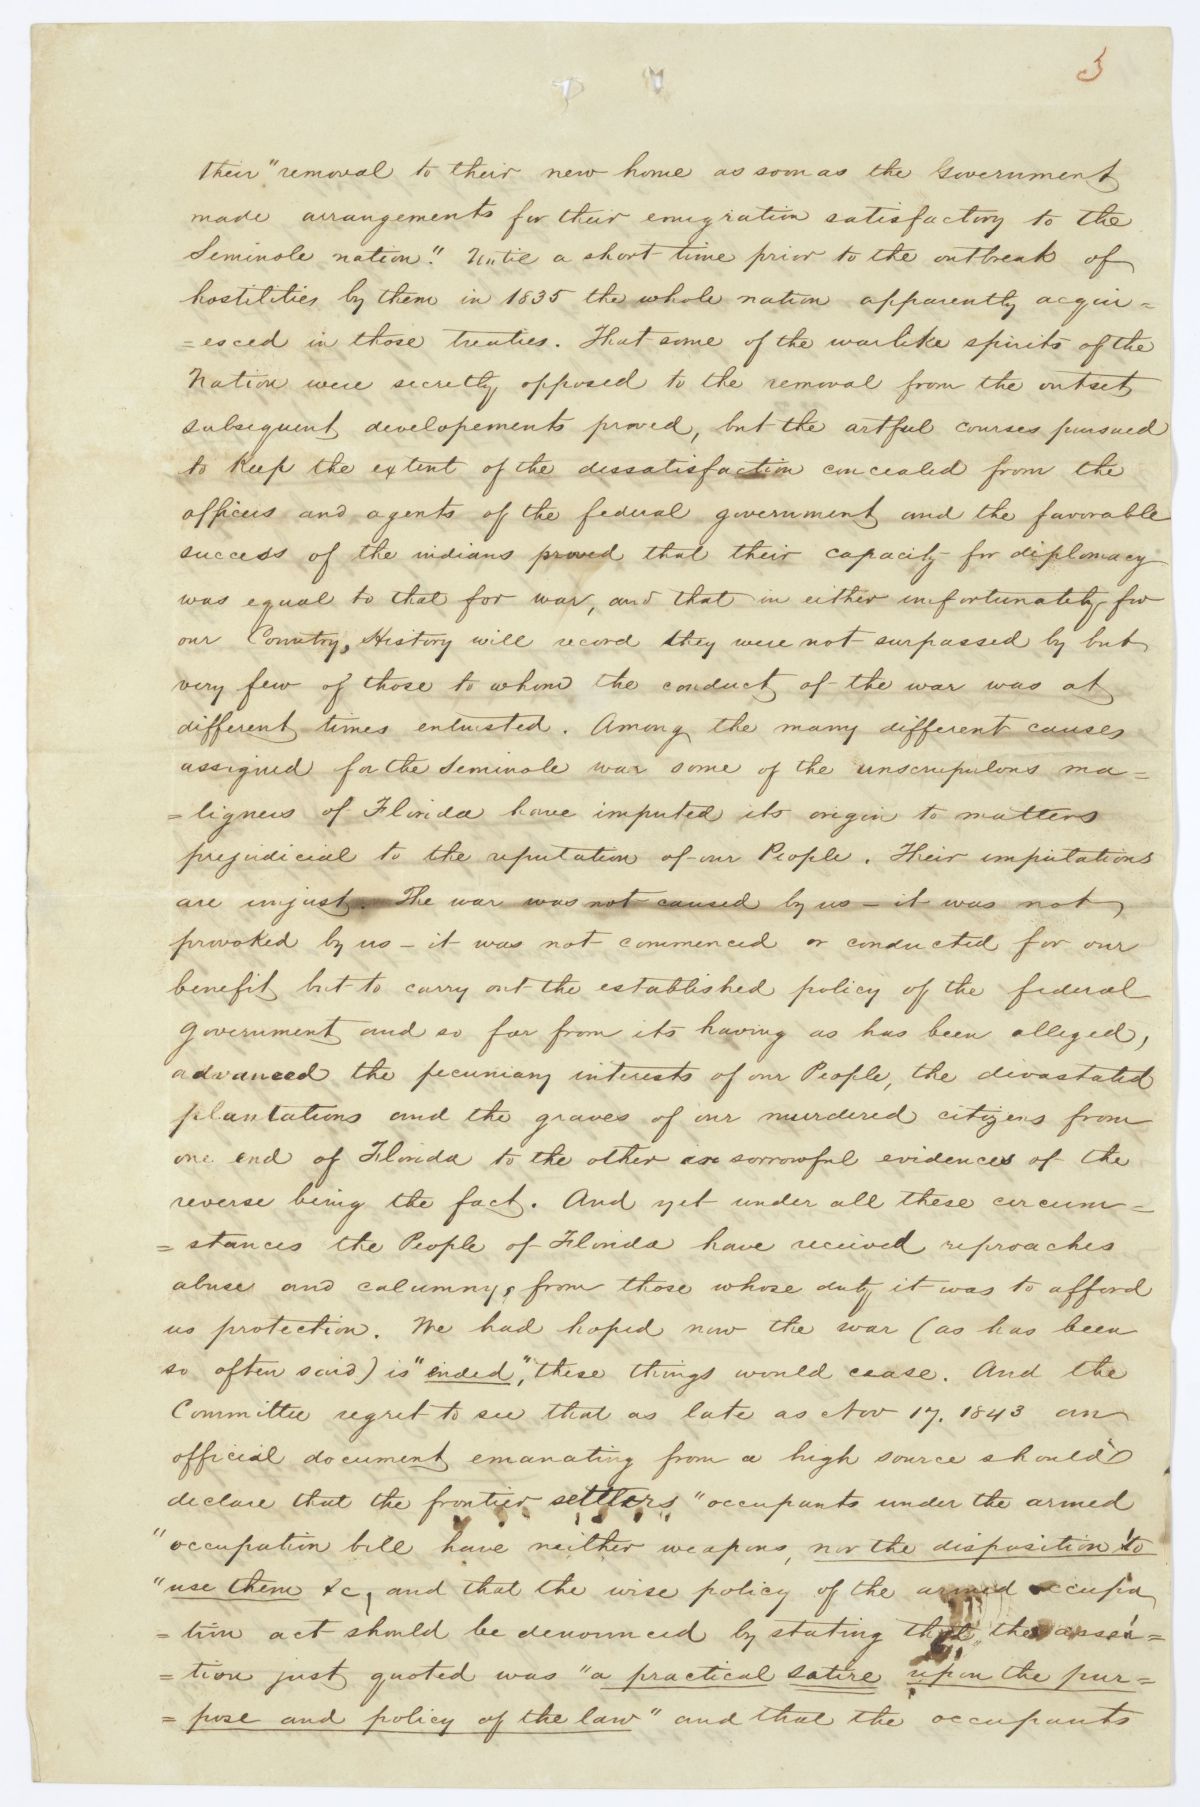 3
their "removal to their new home as soon as the Government
made arrangements for their emigration satisfactory to the
Seminole nation." Until a short time prior to the outbreak of
hostilities by them in 1835 the whole nation apparently acqui=
=esced in those treaties. That some of the warlike spirits of the
Nation were secretly opposed to the removal from the outset
subsequent developements proved, but the artful courses pursued
to keep the extent of the dissatisfaction concealed from the
officers and agents of the federal government and the favorable
success of the indians proved that their capacity for diplomacy
was equal to that for war, and that in either unfortunately for
our Country, History will record they were not surpassed by but
very few of those to whom the conduct of the war was at
different times entrusted. Among the many different causes
assigned for the Seminole war some of the unscrupulous ma=
=ligners of Florida have imputed its origin to matters
prejudicial to the reputation of our People. Their imputations
are unjust. The war was not caused by us – it was not
provoked by us – it was not commenced or conducted for our
benefit but to carry out the established policy of the federal
government and so far from its having as has been alleged,
advanced the pecuniary interests of our People, the devastated
plantations and the graves of our murdered citizens from
one end of Florida to the other are sorrowful evidences of the
reverse being the fact. And yet under all these circum=
=stances the People of Florida have received reproaches
abuse and calumny, from those whose duty it was to afford
us protection. We had hoped now the war (as has been
so often said) is "ended", these things would cease. And the
Committee regret to see that as late as Nov 17. 1843 an
official document emanating from a high source should
declare that the frontier settlers "occupants under the armed
"occupation bill have neither weapons, nor the disposition to
"use them &c, and that the wise policy of the armed occupa
=tion act should be denounced by stating that the asser=
=tion just quoted was "a practical satire upon the pur=
=pose and policy of the law" and that the occupants